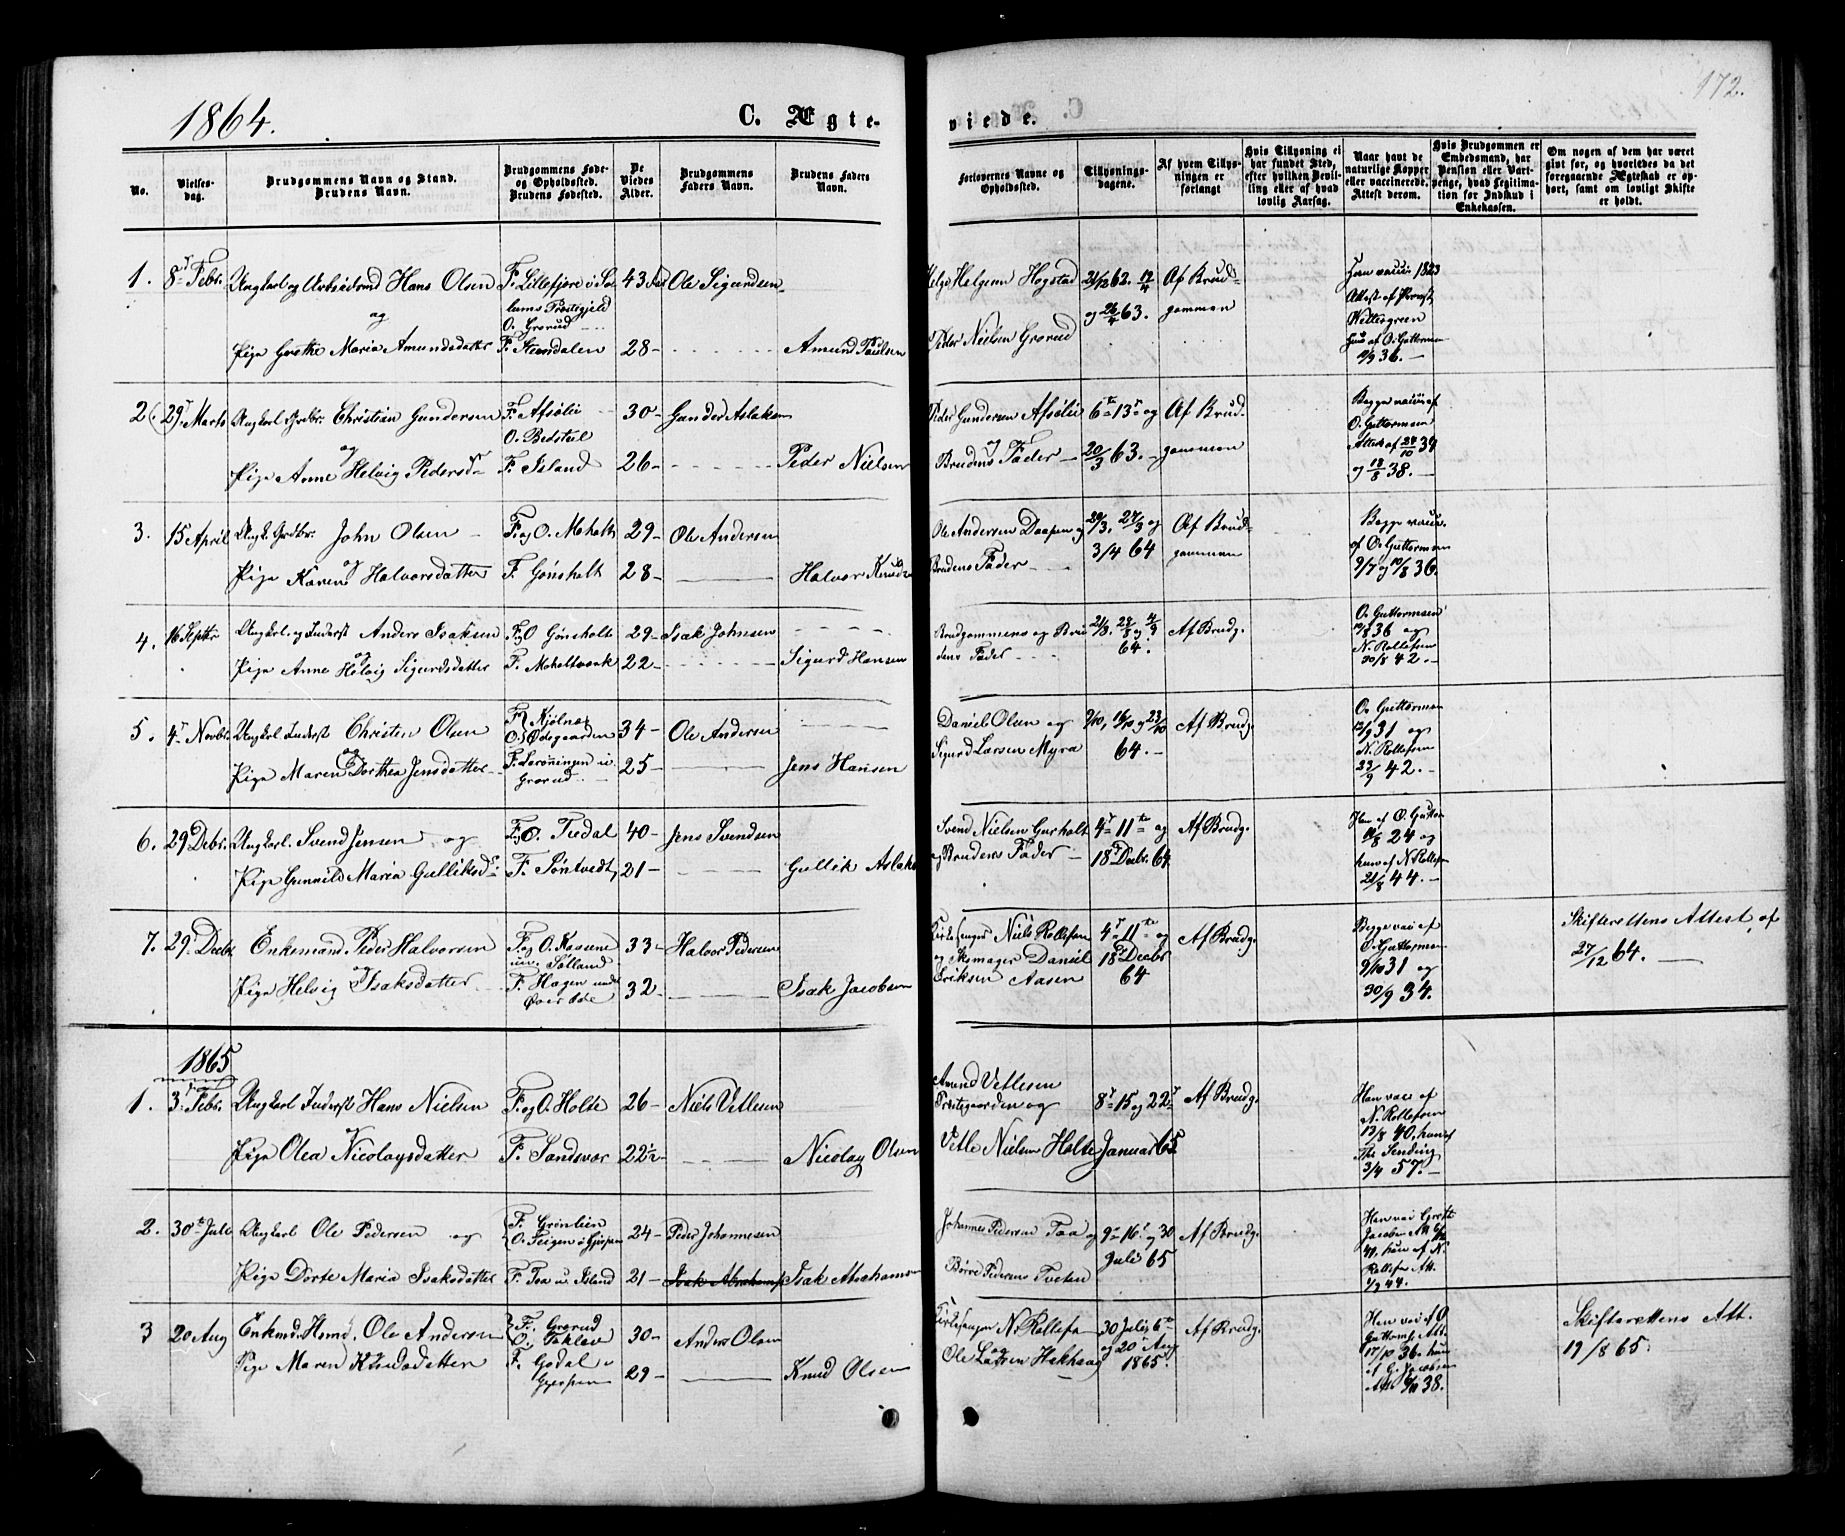 172.
1864.
C. Ægte-
viede.
No.
Vielses-
dag.
Brudgommens Navn og Stand.
Brudens Navn.
Brudgommens Føde-
og Opholdssted.
Brudens Fødested.
De
Viedes
Alder.
Brudgommens
Faders Navn.
Brudens Faders
Navn.
Forlovernes Navne og
Opholdssted.
Tillysnings-
dagene.
Af hvem Tillys-
ningen er
forlangt
Hvis Tillysning ei
har fundet Sted,
efter hvilken Bevil-
ling eller af hvad
lovlig Aarsag.
Naar havt de
naturlige Kopper
eller vaccinerede.
Attest derom.
Hvis Brudgommen er
Embedsmand, har
Pension eller Vart-
penge, hvad Legitima-
tion for Indskud i
Enkekassen.
Om nogen af dem har været
givt før, og hvorledes da det
foregaaende Ægteskab er op-
hørt, samt om lovligt Skifte
er holdt.
1. 8de Febr. Ungkarl og Arbeidsmd Hans Olsen
og
Pige Grethe Maria Amundsdatter
F. Lillefjære i So-
lums Præstegjeld
O. Grorud
F. Steensdalen
43
28
Ole Sigurdsen
Amund Paulsen
Helge Helgesen Hogstad
Peder Nielsen Grorud
21/12 62. 12/4
og 26/4 63.
Af Brud-
gommen
1823
Attest af Provst
Wettergreen
hun af O. Guttormsen
10/9 36.
2. 29 Marts Ungkarl Grdbr. Christian Gundersen
og
Pige Anne Helvig Pedersd.
F. Afsølie
O. Bedstul
F. Island
30
26
Gunder Aslaksen
Peder Nielsen
Peder Gundersen Afsølie
og
Brudens Fader
6te 13de og
20/3 63.
Af Brud-
gommen
Begge vacc. af
O. Guttormsen
Attest af 24/10 39
og 18/8 38.
3. 15 April Ungk. Grdbr. John Olsen
og
Pige Karen Halvorsdatter
F. og O. Moholt
F. Gønsholt
29
28
Ole Andersen
Halvor Knuds.
Ole Andersen Daapen og
Brudens Fader
20/3, 27/3 og
3/4 64
Af Brud-
gommen
Begge vacc.
af O. Guttormsen
9/7 og 10/8 36.
4. 16 Septbr. Ungkarl og Inderst Anders Isaksen
og
Pige Anne Helvig Sigurdsdatter
F. O. Gønsholt
F. Moholtværk
29
22
Isak Johnsen
Sigurd Hansen
Brudgommens og Bru-
dens Fader
21/8, 28/8 og 4/9
64.
Af Brudg.
O. Guttormsen
10/8 36 og
N. Rollefsen
30/8 42.
5. 4de Novbr. Ungkarl Inderst Christen Olsen
og
Pige Maren Dorthea Jensdatter
F. Kjølnæs
O. Ødegaarden
F. Lerøningen u.
Grorud
34
25
Ole Andersen
Jens Hansen
Daniel Olsen og
Sigurd Larsen Myra
9/10, 16/10 og 23/10
64.
Af Brudg.
O. Guttormsen
12/9 31 og
N. Rollefsen
23/9 42.
6. 29 Debr. Ungkarl Svend Jensen og
Pige Gunnild Maria Gulliksd.
F. O. Tredal
F. Søntvedt
40
21
Jens Svendsen
Gullik Aslaks.
Svend Nielsen Gurholt
og Brudens Fader
4de 11te og
18de Decbr. 64
Af Brudg.
Han af O. Guttor.
10/8 24 og
hun af N. Rollefsen
21/8 44.
7. 29. Decbr. Enkemand Peder Halvorsen
og
Pige Helvig Isaksdatter
F. og O. Kaasene
un. Sølland
F. Hagen under
Øverbøe
33
32
Halvor Pedersen
Isak Jacobsen
Kirkesanger Niels Rollefsen
og Skomager Daniel
Eriksen Aasen
4de 11te og
18 Decbr
64
Af Brudg.
Begge vac. af
O. Guttormsen
9/10 31 og
30/9 34.
Skifterettens Attest af
27/12 64.
1865
1. 3. Febr. Ungkarl Inderst Hans Nielsen
og
Pige Olea Nicolaysdatter
F. og O. Holte
F. Sandsvær
26
22 1/2
Niels Vetlesen
Nicolay Olsen
Amund Vetlesen
Præstegaarden og
Vetle Nielsen Holte
8de 15 og 22de
Januar 65.
Af Brudg.
Han vacc. af
N. Rollefsen
13/8 40, hun af
3/4 57.
2. 30te Juli Ungkarl Ole Pedersen og
Pige Dorte Maria Isaksdatter
F. Grønlien
O. Teigen i Gjerpen
F. Taa u. Island
24
21
Peder Johannesen
Isak Abrahams.
Isak Abrahamsen
Johannes Pedersen Taa og
Børre Pedersen Tveten
9de 16de og 30
Juli 65
Af Brudg.
Han vac.
Jacobsen Att.
41, hun af N.
Rollefsn Att.
1/9 44.
3 20 Aug Enkemd. Hsmd. Ole Andersen
og
Pige Maren Knudsdatter
F. Grorud
O. Taklev
F. Godal i
Gjerpen
30
29
Anders Olsen
Knud Olsen
Kirkesanger N. Rollefsen
og
Ole Larsen Hakhaag
30 Juli, 6te
og 20 Aug
1865.
Af Brudg.
Han vac. af O.
Guttorms. Att.
17/10 36, hun
af G. Jacobsen
Att. 9/10 38.
Skifterettens Att.
19/8 65.